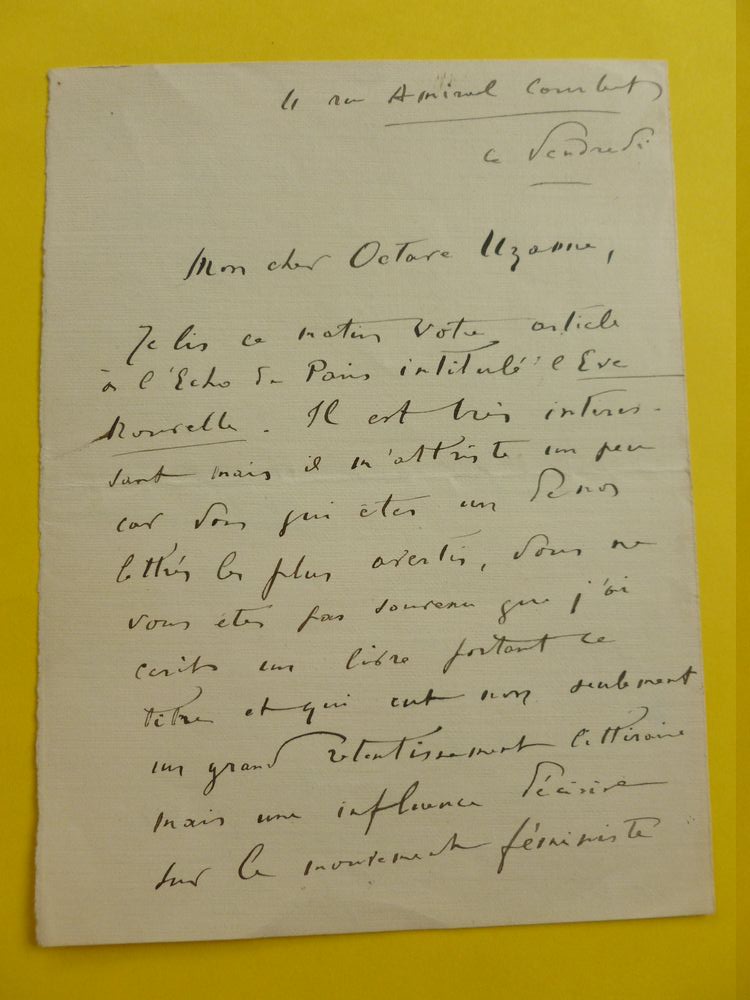 4 rue Amiral Courbet
ce Vendredi
Mon cher Octave Uzanne,
Je lis ce matin votre article
à l'Echo de Paris intitulé l'Eve
Nouvelle. Il est très intéres-
sant mais il m'attriste un peu
car vous qui êtes un de nos
lettrés les plus avertis, vous ne
vous êtes pas souvenu que j'ai
écrit un livre portant ce
titre et qui eut non seulement
un grand retentissement littéraire
mais une influence décisive
sur le mouvement féministe